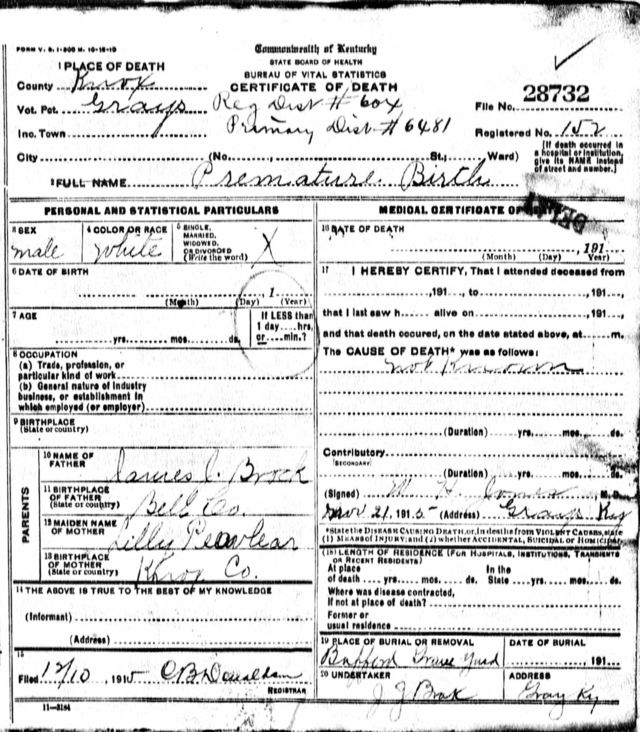 FORM V. S. 1-300 M. 10-16-10
Commonwealth of Kentucky
STATE BOARD OF HEALTH
BUREAU OF VITAL STATISTICS
CERTIFICATE OF DEATH
1 PLACE OF DEATH
County Knox
Vot. Pct. Grays Reg Dist # 604
File No. 28732
Inc. Town Primary Dist # 6481
Registered No. 152
City (No., St.; Ward)
[If death occurred in a hospital or institution, give its NAME instead of street and number.]
2 FULL NAME Premature Birth
PERSONAL AND STATISTICAL PARTICULARS
3 SEX male
4 COLOR OR RACE white
5 SINGLE, MARRIED, WIDOWED OR DIVORCED (Write the word) X
6 DATE OF BIRTH
, 1
(Month) (Day) (Year)
7 AGE
yrs. mos. ds.
If LESS than 1 day.... hrs. or .... min.?
8 OCCUPATION
(a) Trade, profession, or particular kind of work
(b) General nature of industry business, or establishment in which employed (or employer)
9 BIRTHPLACE
(State or country)
PARENTS
10 NAME OF FATHER James J. Brock
11 BIRTHPLACE OF FATHER (State or country) Bell Co.
12 MAIDEN NAME OF MOTHER Lilly
13 BIRTHPLACE OF MOTHER (State or country) Knox Co.
14 THE ABOVE IS TRUE TO THE BEST OF MY KNOWLEDGE
(Informant)
(Address)
15
Filed 12/10 1915 C B Donaldson
REGISTRAR
11-3184
MEDICAL CERTIFICATE OF
16 DATE OF DEATH
191
(Month) (Day) (Year)
17 I HEREBY CERTIFY, That I attended deceased from
,191 , to ,191 ,
that I last saw h alive on ,191 ,
and that death occured, on the date stated above, at m.
The CAUSE OF DEATH* was as follows:
Not Known
(Duration) yrs. mos. ds.
Contributory
(SECONDARY)
(Duration) yrs. mos. ds.
(Signed) W. H. M. D.
Nov 21, 1915 (Address) Grays Ky
*State the DISEASE CAUSING DEATH, or, in deaths from VIOLENT CAUSES, state (1) MEANS OF INJURY; and (2) whether ACCIDENTAL, SUICIDAL or HOMICIDAL
(18) LENGTH OF RESIDENCE (FOR HOSPITALS, INSTITUTIONS, TRANSIENTS OR RECENT RESIDENTS)
At place of death yrs. mos. ds. In the State yrs. mos. ds.
Where was disease contracted, If not at place of death?
Former or usual residence
19 PLACE OF BURIAL OR REMOVAL
DATE OF BURIAL
Bafford Grave Yard
191
20 UNDERTAKER
ADDRESS
J J Brock
Gray Ky